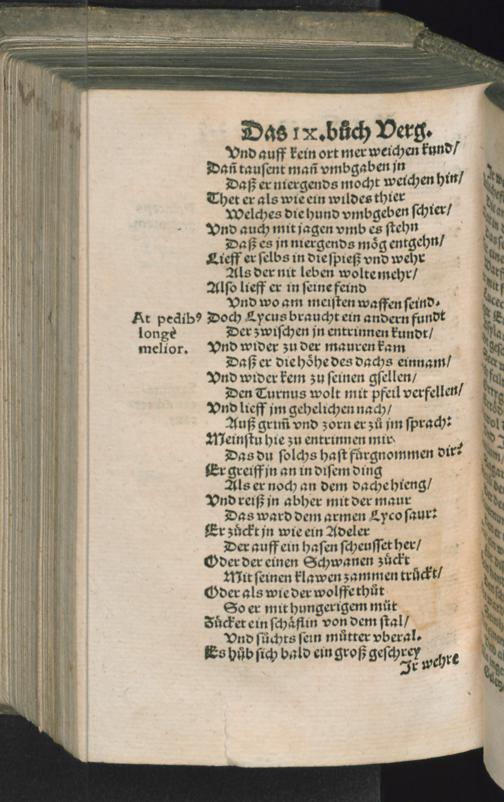 Das IX. bůch Verg.
Vnd auff kein ort mer weichen kund/
Dañ tausent mañ vmbgaben jn
Daß er niergends mocht weichen hin/
Thet er als wie ein wildes thier
Welches die hund vmbgeben schier/
Vnd auch mit jagen vmb es stehn
Daß es jn niergends mög entgehn/
Lieff er selbs in die spieß vnd wehr
Als der nit leben wolte mehr/
Also lieff er in seine feind
Vnd wo am meisten waffen seind.
At pedibꝰ
longè
melior.
Doch Lycus braucht ein andern fundt
Der zwischen jn entrinnen kundt/
Vnd wider zu der mauren kam
Daß er die höhe des dachs einnam/
Vnd wider kem zu seinen gsellen/
Den Turnus wolt mit pfeil verfellen/
Vnd lieff jm gehelichen nach/
Auß grim̃ vnd zorn er zů jm sprach:
Meinstu hie zu entrinnen mir
Das du solchs hast fürgnommen dir?
Er greiff jn an in disem ding
Als er noch an dem dache hieng/
Vnd reiß jn abher mit der maur
Das ward dem armen Lyco saur:
Er zückt jn wie ein Adeler
Der auff ein hasen scheusset her/
Oder der einen Schwanen zückt
Mit seinen klawen zammen trückt/
Oder als wie der wolffe thůt
So er mit hungerigem můt
Zücket ein schäflin von dem stal/
Vnd sůchts sein můtter vberal.
Es hůb sich bald ein groß geschrey
Ir wehre